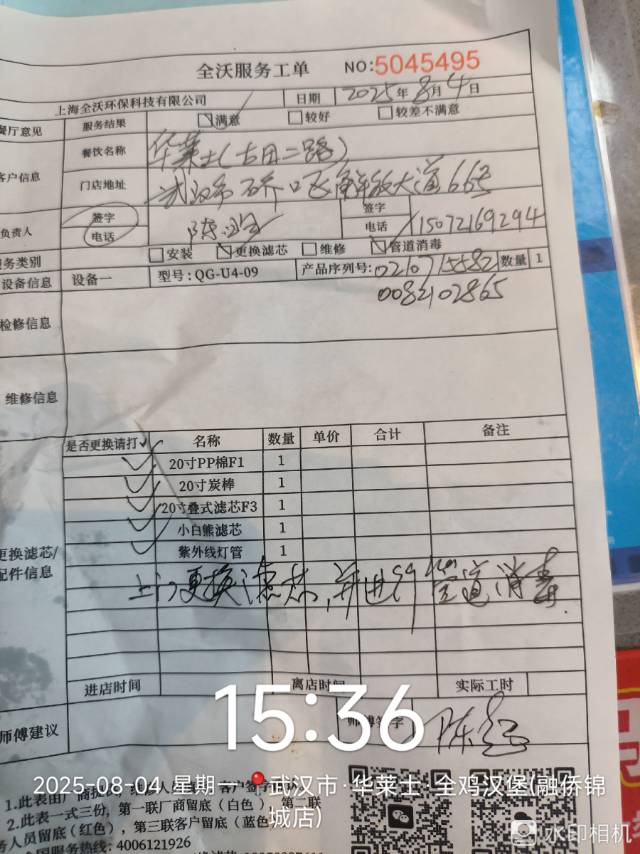 全沃服务工单 NO:5045495
上海全沃环保科技有限公司 日期 2025年8月4日
餐厅意见 服务结果 满意 较好 较差不满意
客户信息 餐饮名称 华莱士(古田二路)
门店地址 武汉市硚口区解放大道66号
负责人 签字 签字
电话 电话 15072169294
服务类别 安装 更换滤芯 维修 管道消毒
设备信息 设备一 型号:QG-U4-09 产品序列号:0210715582 数量 1
0082102865
检修信息
维修信息
是否更换请打✓ 名称 数量 单价 合计 备注
20寸PP棉F1 1
20寸炭棒 1
20寸叠式滤芯F3 1
小白熊滤芯 1
紫外线灯管 1
更换滤芯/
配件信息
上门更换滤芯,并进行管道消毒.
进店时间 离店时间 实际工时
师傅建议 师傅签字
15:36
2025-08-04 星期一 武汉市·华莱士·全鸡汉堡(融侨锦
城店)
1.此表由厂商提供
2.此表一式三份,第一联厂商留底(白色),第二联
务人员留底(红色),第三联客户留底(蓝色
国服务热线:4006121926
水印相机